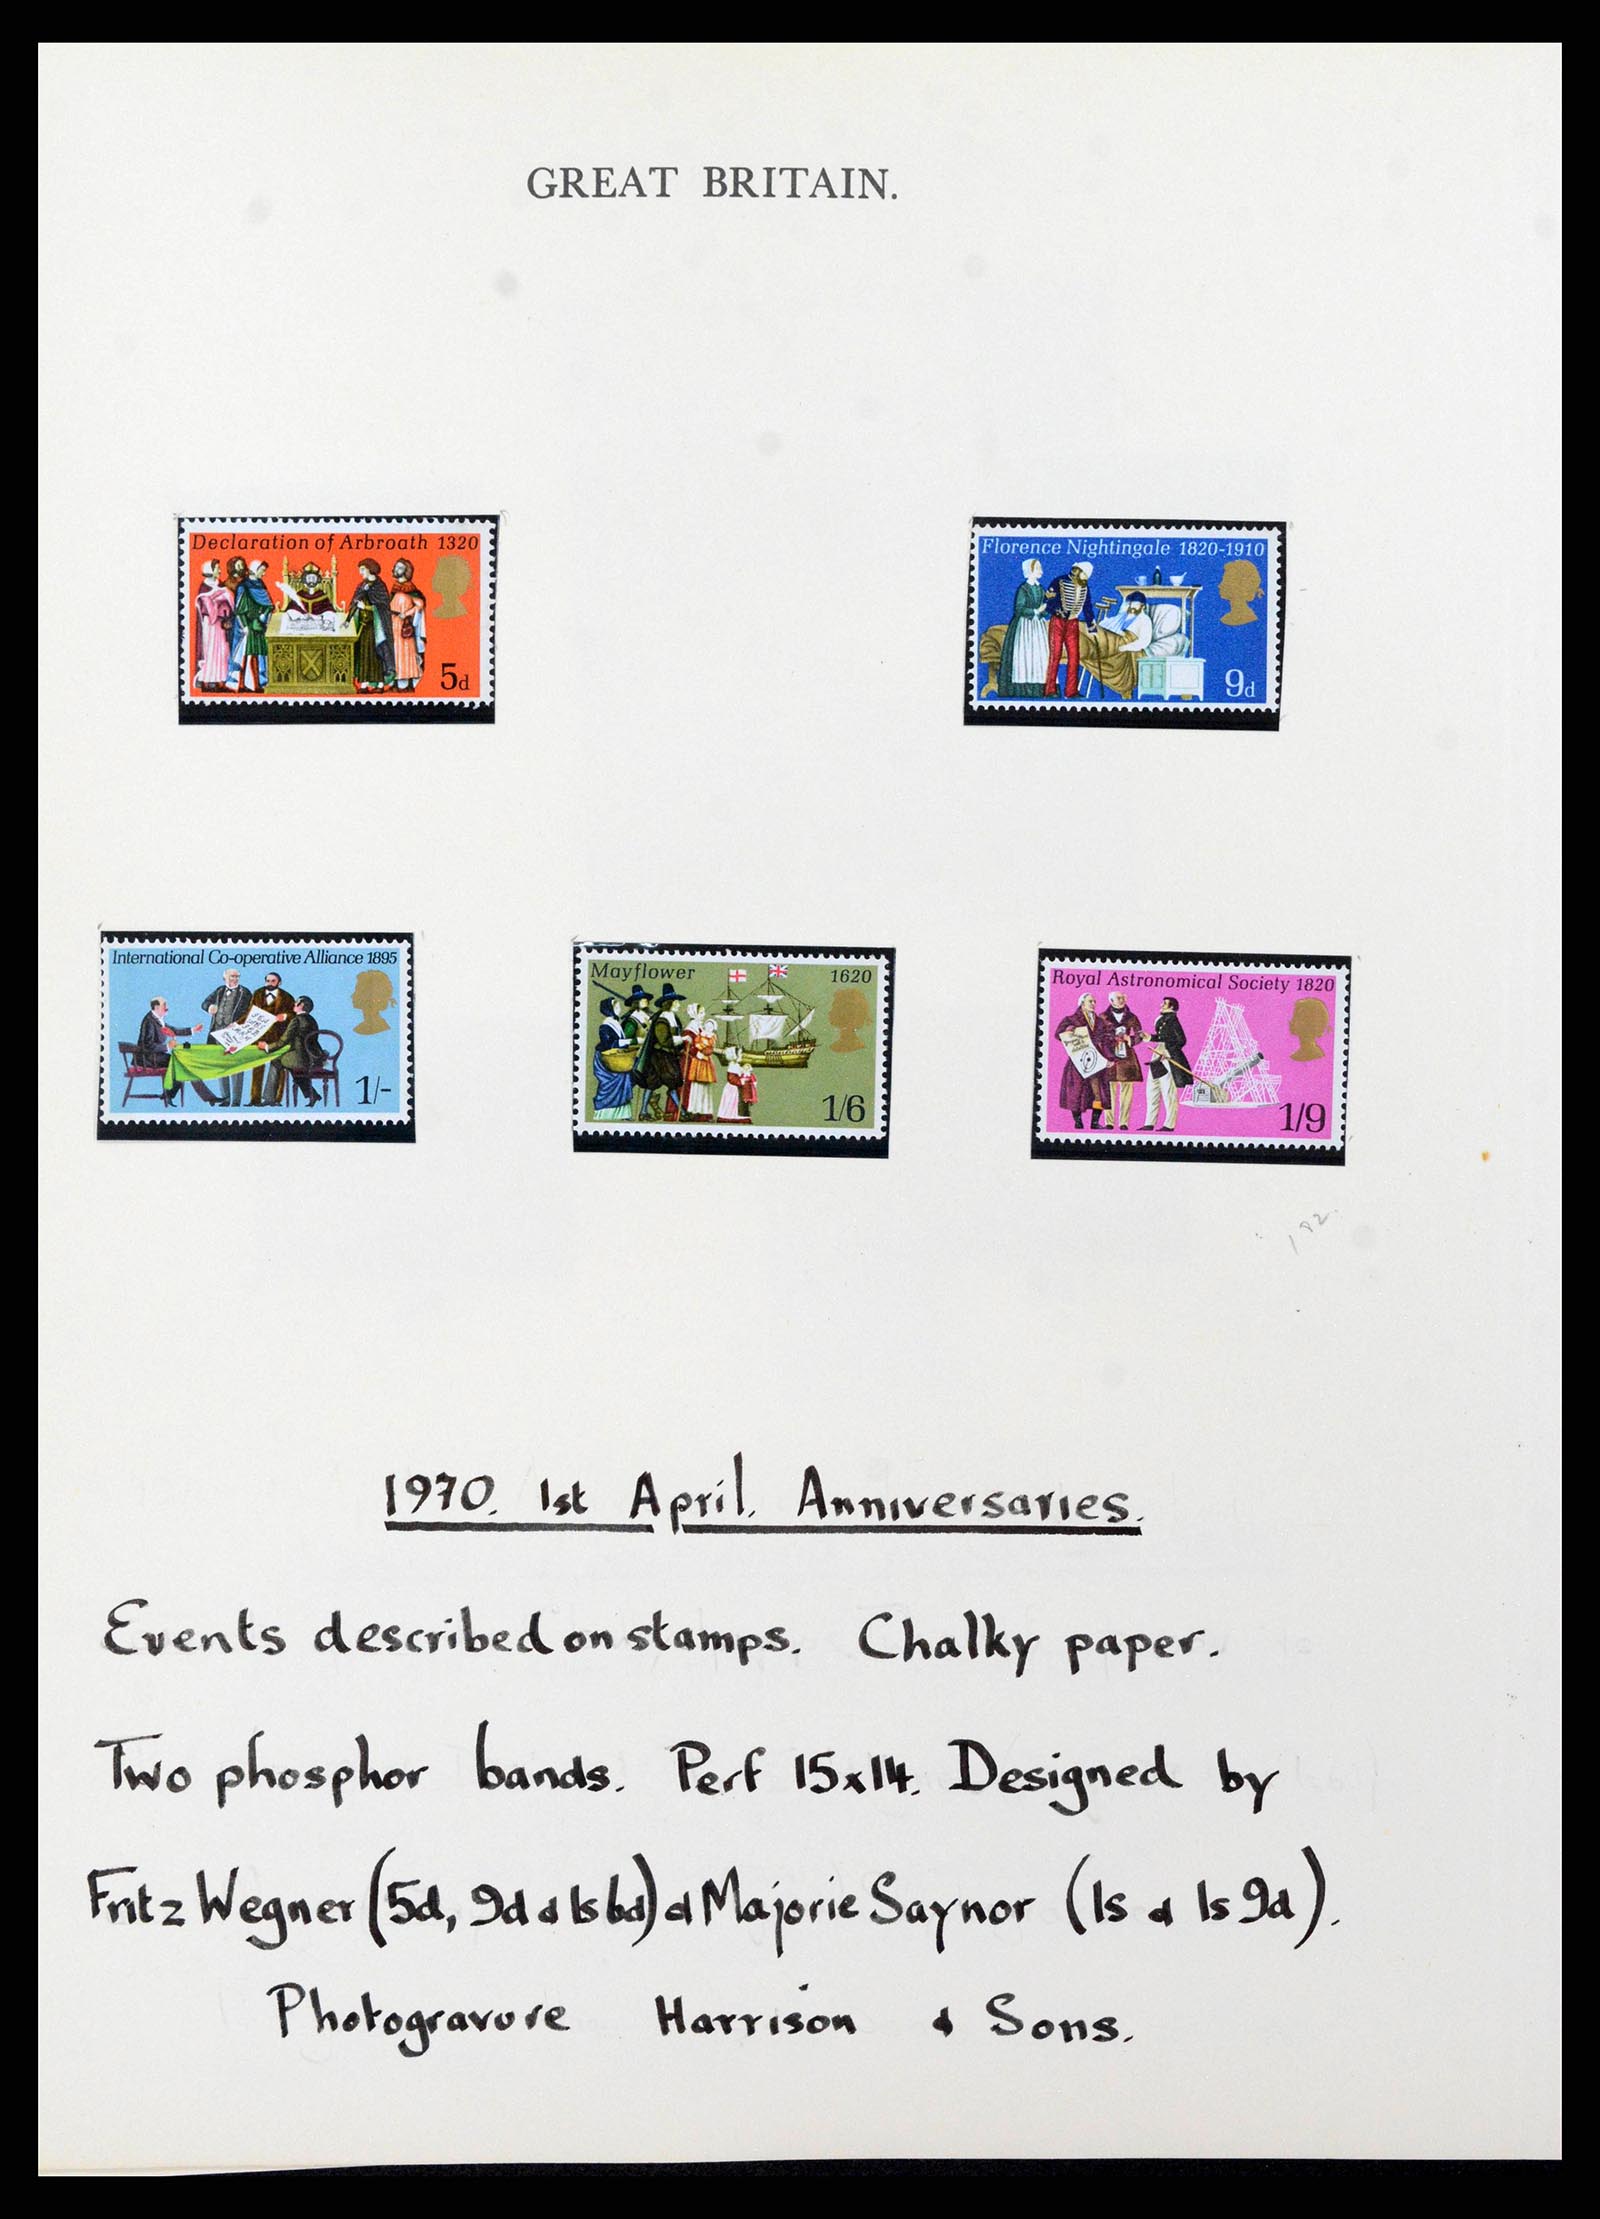 GREAT BRITAIN.
Declaration of Arbroath 1320
5d
Florence Nightingale 1820-1910
9d
International Co-operative Alliance 1895
1/-
Mayflower 1620
1/6
Royal Astronomical Society 1820
1/9
1970. 1st April. Anniversaries.
Events described on stamps. Chalky paper.
Two phosphor bands. Perf 15x14. Designed by
Fritz Wegner (5d, 9d & 1s6d) & Majorie Saynor (1s & 1s9d).
Photogravure Harrison & Sons.